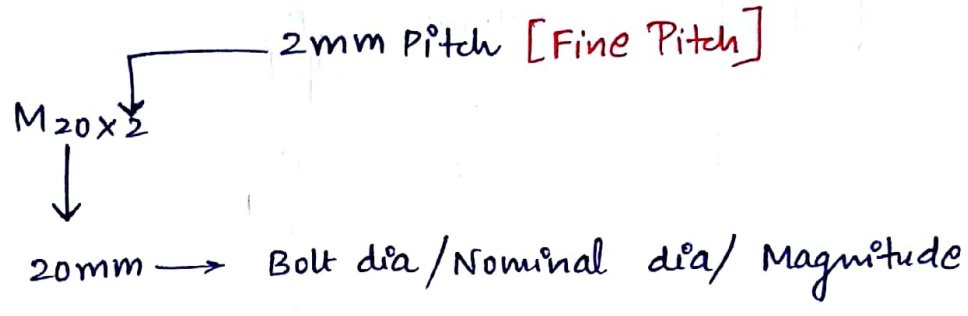 2mm Pitch [Fine Pitch]
M20x2
20mm → Bolt dia/Nominal dia/ Magnitude